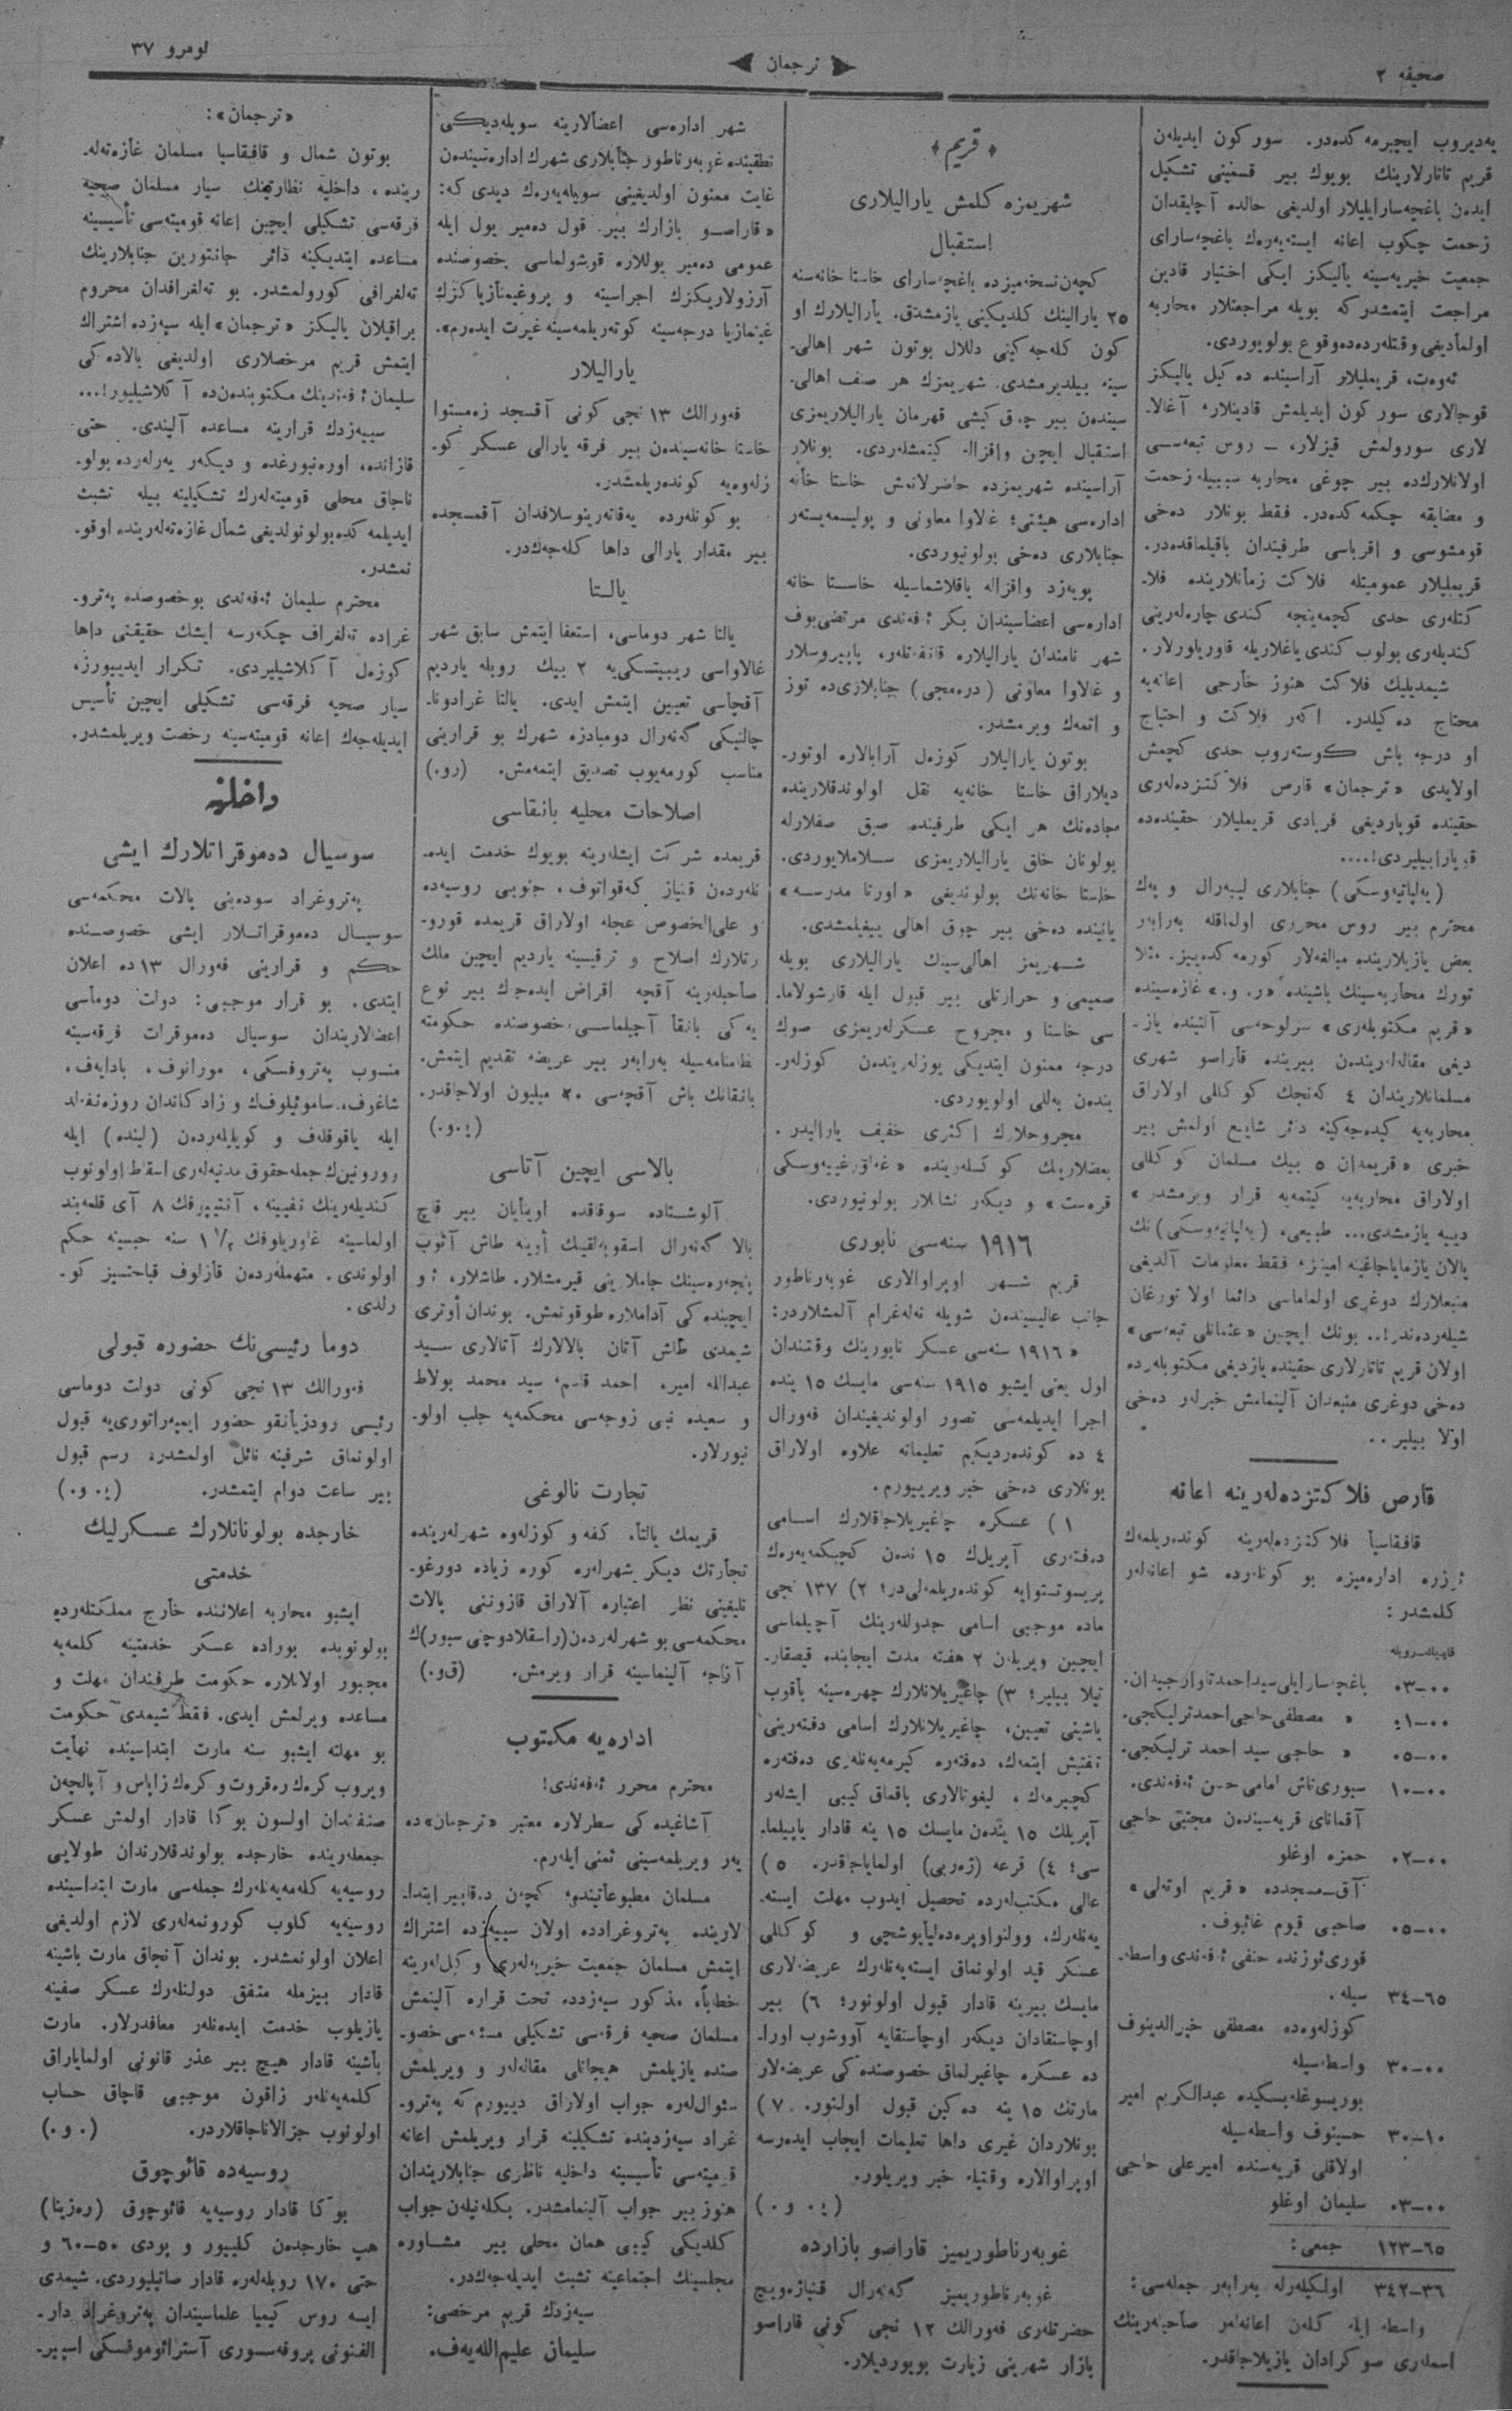 صحیفه ۲
ترجمان
نومرو ۳۷
یه‌دیروب ایچیرمه كده‌در. سور كون ایدیله‌ن
قریم تاتارلارینك بویوك بیر قسمنی تشكیل
ایده‌ن باغچه‌سارایلیلار اولدیغی حالده آچلیقدان
زحمت چكوب اعانه ایسته‌یه‌رك باغچه‌سارای
جمعیت خیریه‌سینه یالیكز ایكی اختیار قادین
مراجعت ایتمشدركه بویله مراجعتلار محاربه
اولمادیغی وقتله‌رده‌ده وقوع بولویوردی.
ئه‌وه‌ت، قریملیلار آراسینده ده‌كیل یالیكز
قوجالاری سور كون ایدیلمش قادینلار، آغالا-
لاری سورولمش قیزلار، – روس تبعه‌سی
اولانلارك‌ده بیر چوغی محاربه سببیله زحمت
و مضایقه چكمه كده‌در. فقط بونلار ده‌خی
قومشوسی و اقرباسی طرفیندان باقیلماقده‌در.
قریملیلار عمومیتله فلاكت زمانلارینده فلا-
كتله‌ری حدی كچمه‌ینچه كندی چاره‌له‌رینی
كندیله‌ری بولوب كندی یاغلاریله قاوریلورلار.
شیمدیلیك فلاكت هنوز خارجی اعانه‌یه
محتاج ده‌كیلدر. اكه‌ر فلاكت و احتیاج
او درجه باش كوسته‌روب حدی كچمش
اولایدی «ترجمان» قارص فلاكتزده‌له‌ری
حقینده قوپاردیغی فریادی قریملیلار حقینده‌ده
قوپارابیلیردی!....
(یه‌لپاتیه‌وسكی) جنابلاری لیبه‌رال و پك
محترم بیر روس محرری اولماقله به‌رابه‌ر
بعض یازیلارینده مبالغه‌لار كورمه كده‌ییز. مثلا
تورك محاربه‌سینك باشینده «ر. و.» غازه‌سینده
«قریم مكتوبله‌ری» سرلوحه‌سی آلتینده یاز-
دیغی مقاله‌له‌رینده‌ن بیرینده قاراصو شهری
مسلمانلاریندان ٤ كه‌نجك كوكللی اولاراق
محاربه‌یه كیده‌جه‌كینه دائر شایع اولمش بیر
خبری «قریمدان ٥ بیك مسلمان كوكللی
اولاراق محاربه‌یه كیتمه‌یه قرار ویرمشدر»
دییه یازمشدی... طبیعی، (یه‌لپاتیه‌وسكی)نك
یالان یازمایاجاغینه امینز، فقط معلومات آلدیغی
منبعلارك دوغری اولماماسی دائما اولا تورغان
شیله‌رده‌ندر!.. بونك ایچین «عثمانلی تبعه‌سی»
اولان قریم تاتارلاری حقینده یازدیغی مكتوبله‌رده
ده‌خی دوغری منبعدان آلینمامش خبرله‌ر ده‌خی
اولا بیلیر..
قارص فلاكتزده‌له‌رینه اعانه
قافقاسیا فلاكتزده‌له‌رینه كونده‌ریلمه‌ك
ئوزره اداره‌میزه بو كونله‌رده شو اعانه‌له‌ر
كلمشدر:
قاپیك–روبله
۰۳–۰۰ باغچه‌سارایلی سیداحمد تاوارجیدان.
« مصطفی حاجی احمد ترلیكجی.
۰۵–۰۰ « حاجی سید احمد ترلیكجی.
۱۰–۰۰ سیوری‌تاش امامی حسن ئه‌فه‌ندی.
آقمانای قریه‌سینده‌ن مجتبی حاجی
۰۲–۰۰ حمزه اوغلو
آق–مسجدده «قریم اوته‌لی»
۰۵–۰۰ صاحبی قیوم غائبوف.
قوری‌ئوزنده حنفی ئه‌فه‌ندی واسطه-
۳٤–٦٥ سیله.
كوزله‌وه‌ده مصطفی خیرالدینوف
۳۰–۰۰ واسطه‌سیله
بوریسوغله‌بسكیده عبدالكریم امیر
۳۰–۱۰ حسینوف واسطه‌سیله
اولاقلی قریه‌سنده امیرعلی حاجی
۰۳–۰۰ سلیمان اوغلو
۱۲۳–٦٥ جمعی:
۳٤۲–۳٦ اولكیله‌رله به‌رابه‌ر جمله‌سی:
واسطه ایله كله‌ن اعانه‌له‌ر صاحبله‌رینك
اسمله‌ری صوكرادان یازیلاجاقدر.
﴿ قریم ﴾
شهریمزه كلمش یارالیلاری
استقبال
كچه‌ن نسخه‌میزده باغچه‌سارای خاستا خانه‌سنه
۲٥ یارالینك كلدیكینی یازمشدق. یارالیلارك او
كون كله‌جه‌كینی دللال بوتون شهر اهالی-
سینه بیلدیرمشدی. شهریمزك هر صنف اهالی-
سینده‌ن بیر چوق كیشی قهرمان یارالیلاریمزی
استقبال ایچن واقزاله كیتمشله‌ردی. بونلار
آراسینده شهریمزده حاضرلانمش خاستا خانه
اداره‌سی هیئتی؛ غالاوا معاونی و پولیسمه‌یسته‌ر
جنابلاری ده‌خی بولونیوردی.
پویه‌زد واقزاله یاقلاشماسیله خاستا خانه
اداره‌سی اعضاسیندان بكر ئه‌فه‌ندی مرتضی‌یوف
شهر نامندان یارالیلاره قانفه‌تله‌ر، پاپیروسلار
و غالاوا معاونی (دره‌مجی) جنابلاری‌ده توز
و اتمه‌ك ویرمشدر.
بوتون یارالیلار كوزه‌ل آرابالاره اوتور-
دیلاراق خاستا خانه‌یه نقل اولوندقلارینده
جاده‌نك هر ایكی طرفینده صیق صفلارله
بولونان خلق یارالیلاریمزی سلاملایوردی.
خاستا خانه‌نك بولوندیغی «اورتا مدرسه»
یانینده ده‌خی بیر چوق اهالی ییغیلمشدی.
شهریمز اهالی‌سینك یارالیلاری بویله
صمیمی و حرارتلی بیر قبول ایله قارشولاما-
سی خاستا و مجروح عسكرله‌ریمزی صوك
درجه ممنون ایتدیكی یوزله‌رینده‌ن كوزله‌ر-
ینده‌ن به‌للی اولویوردی.
مجروحلارك اكثری خفیف یارالیدر.
بعضلارینك كوكسله‌رینده «غه‌اورغییه‌وسكی
قره‌ست» و دیكه‌ر نشانلار بولونیوردی.
۱۹۱٦ سنه‌سی نابوری
قریم شهر اوپراوالاری غوبه‌رناطور
جانب عالیسینده‌ن شویله ته‌له‌غرام آلمشلاردر:
«۱۹۱٦ سنه‌سی عسكر نابورینك وقتندان
اول یعنی ایشبو ۱۹۱٥ سنه‌سی مایسك ۱٥ ینده
اجرا ایدیلمه‌سی تصور اولوندیغیندان فه‌ورال
٤ ده كونده‌ردیكیم تعلیماته علاوه اولاراق
بونلاری ده‌خی خبر ویرییورم.
۱) عسكره چاغیریلاجاقلارك اسامی
دفته‌ری آپریلك ۱٥ نده‌ن كچیكمه‌یه‌رك
پریسوتستوایه كونده‌ریلمه‌لی‌در؛ ۲) ۱۳۷ نجی
ماده موجبی اسامی جدوللرینك آچیلماسی
ایچین ویریله‌ن ۲ هفته مدت ایجابنده قیصقار-
تیلا بیلیر؛ ۳) چاغیریلانلارك چهره‌سینه باقوب
یاشینی تعیین، چاغیریلانلارك اسامی دفته‌رینی
تفتیش ایتمه‌ك، ده‌فته‌ره كیرمه‌یه‌نله‌ری ده‌فته‌ره
كچیرمه‌ك، لیغوتالاری باقماق كیبی ایشله‌ر
آپریلك ۱٥ ینده‌ن مایسك ۱٥ ینه قادار یاپیلما-
سی؛ ٤) قرعه (ژه‌ربی) اولمایاجاقدر. ٥)
عالی مكتب‌له‌رده تحصیل ایدوب مهلت ایسته-
یه‌نله‌رك، وولنواوپره‌ده‌لیایوشچی و كوكللی
عسكر قید اولونماق ایسته‌یه‌نله‌رك عریضه‌لاری
مایسك بیرینه قادار قبول اولونور؛ ٦) بیر
اوچاستقادان دیكه‌ر اوچاستقایه آووشوب اورا-
ده عسكره چاغیرلماق خصوصنده‌كی عریضه‌لار
مارتك ۱٥ ینه ده‌كین قبول اولنور. ۷)
بونلاردان غیری داها تعلیمات ایجاب ایده‌رسه
اوپراوالاره وقتیله خبر ویریلور.
(ی. و.)
غوبه‌رناطوریمیز قاراصو بازارده
غوبه‌رناطوریمیز كه‌نه‌رال قنیاژه‌ویچ
حضرتله‌ری فه‌ورالك ۱۲ نجی كونی قاراصو
بازار شهرینی زیارت بویوردیلار.
شهر اداره‌سی اعضالارینه سویله‌دیكی
نطقینده غوبه‌رناطور جنابلاری شهرك اداره‌سینده‌ن
غایت ممنون اولدیغینی سویله‌یه‌رك دیدی كه:
«قاراصو بازارك بیر قول ده‌میر یول ایله
عمومی ده‌میر یوللاره قوشولماسی خصوصنده
آرزولاریكزك اجراسینه و پروغیمنازیاكزك
غیمنازیا درجه‌سینه كوته‌ریلمه‌سینه غیرت ایده‌رم».
یارالیلار
فه‌ورالك ۱۳ نجی كونی آقمسجد زه‌مستوا
خاستا خانه‌سینده‌ن بیر فرقه یارالی عسكر كو-
زله‌وه‌یه كونده‌ریلمشدر.
بو كونله‌رده یه‌قاته‌رینوسلافدان آقمسجده
بیر مقدار یارالی داها كله‌جه‌كدر.
یالتا
یالتا شهر دوماسی، استعفا ایتمش سابق شهر
غالاواسی ریبیتسكی‌یه ۲ بیك روبله یاردیم
آقچاسی تعیین ایتمش ایدی. یالتا غرادونا-
چالنیكی كه‌نه‌رال دومبادزه شهرك بو قرارینی
مناسب كورمه‌یوب تصدیق ایتمه‌مش. (رو.)
اصلاحات محلیه بانقاسی
قریمده شركت ایشله‌رینه بویوك خدمت ایده-
نله‌رده‌ن قنیاز كه‌قواتوف، جنوبی روسیه‌ده
و علی‌الخصوص عجله اولاراق قریمده قورو-
رتلارك اصلاح و ترقیسینه یاردیم ایچین ملك
صاحبله‌رینه آقچه اقراض ایده‌جك بیر نوع
یه‌كی بانقا آچیلماسی خصوصنده حكومته
نظامنامه‌سیله به‌رابه‌ر بیر عریضه تقدیم ایتمش.
بانقانك باش آقچه‌سی ۲۰ میلیون اولاجاقدر.
(ی. و.)
بالاسی ایچین آتاسی
آلوشتاده سوقاقده اوینایان بیر قاچ
بالا كه‌نه‌رال اسقوبه‌لقینك أوینه طاش آتوب
پنجه‌ره‌سینك جاملارینی قیرمشلار. طاشلار، ئه‌و
ایچینده‌كی آداملاره طوقونمش. بوندان أوتری
شیمدی طاش آتان بالالارك آتالاری سید
عبدالله امیر، احمد قاسم، سید محمد بولاط
و سعیده نبی زوجه‌سی محكمه‌یه جلب اولو-
نیورلار.
تجارت نالوغی
قریمك یالتا، كفه و كوزله‌وه شهرله‌رینده
تجارتك دیكر شهرله‌ره كوره زیاده دورغو-
نلیغینی نظر اعتباره آلاراق قازوننی پالات
محكمه‌سی بو شهرله‌رده‌ن (راسقلادوچنی سبور)ك
آزاجه آلینماسینه قرار ویرمش. (ق و.)
اداره‌یه مكتوب
محترم محرر ئه‌فه‌ندی!
آشاغیده‌كی سطرلاره معتبر «ترجمان»ده
یه‌ر ویریلمه‌سینی تمنی ایله‌رم.
مسلمان مطبوعاتینده، كچه‌ن ده‌قابیر ابتدا-
لارینده په‌تروغرادده اولان سییه‌زده اشتراك
ایتمش مسلمان جمعیت خیریه‌له‌ری و كیل‌له‌رینه
خطاباً، مذكور سیه‌زدده تحت قراره آلینمش
مسلمان صحیه فرقه‌سی تشكیلی مسئله‌سی خصو-
صنده یازیلمش هیجانلی مقاله‌له‌ر و ویریلمش
سئوال‌له‌ره جواب اولاراق دییورم كه په‌ترو-
غراد سیه‌زدینده تشكیلینه قرار ویریلمش اعانه
قومیته‌سی تأسیسینه داخلیه ناظری جنابلاریندان
هنوز بیر جواب آلینمامشدر. بكله‌نیله‌ن جواب
كلدیكی كیبی همان محلی بیر مشاوره
مجلسینك اجتماعینه تشبث ایدیله‌جه‌كدر.
سیه‌زدك قریم مرخصی:
سلیمان علیم‌الله‌یه‌ف.
«ترجمان»:
بوتون شمال و قافقاسیا مسلمان غازه‌ته‌له-
رینده، داخلیه نظارتینك سیار مسلمان صحیه
فرقه‌سی تشكیلی ایچین اعانه قومیته‌سی تأسیسینه
مساعده ایتدیكینه دائر جانتورین جنابلارینك
ته‌لغرافی كورولمشدر. بو ته‌لغرافدان محروم
براقیلان یالیكز «ترجمان» ایله سیه‌زده اشتراك
ایتمش قریم مرخصلاری اولدیغی بالاده‌كی
سلیمان ئه‌فه‌ندینك مكتوبنده‌ن‌ده آكلاشیلیور!...
سییه‌زدك قرارینه مساعده آلیندی. حتی
قازانده، اوره‌نبورغده و دیكه‌ر یه‌رله‌رده بولو-
ناجاق محلی قومیته‌له‌رك تشكیلینه بیله تشبث
ایدیلمه كده بولونولدیغی شمال غازه‌ته‌له‌رینده اوقو-
نمشدر.
محترم سلیمان ئه‌فه‌ندی بو خصوصده په‌ترو-
غراده ته‌لغراف چكه‌رسه ایشك حقیقتی داها
كوزه‌ل آكلاشیلیردی. تكرار ایدییورز،
سیار صحیه فرقه‌سی تشكیلی ایچین تأسیس
ایدیله‌جه‌ك اعانه قومیته‌سینه رخصت ویریلمشدر.
داخلیه
سوسیال ده‌موقراتلارك ایشی
په‌تروغراد سوده‌بنی پالات محكمه‌سی
سوسیال ده‌موقراتلار ایشی خصوصنده
حكم و قرارینی فه‌ورال ۱۳ده اعلان
ایتدی. بو قرار موجبی: دولت دوماسی
اعضالاریندان سوسیال ده‌موقرات فرقه‌سینه
منسوب په‌تروفسكی، مورانوف، بادایه‌ف،
شاغوف، ساموئیلوف‌ك و زادكاندان روزه‌نفه‌لد
ایله یاقوفله‌ف و كویلیله‌رده‌ن (لینده) ایله
وورونین‌ك جمله حقوق مدنیه‌له‌ری اسقاط اولونوب
كندیله‌رینك نفیینه، آنتیپوفك ۸ آی قلعه‌بند
اولماسینه غاوریلوفك ۱½ سنه حبسینه حكم
اولوندی. متهمله‌رده‌ن قازلوف قباحتسیز كو-
رلدی.
دوما رئیسی‌نك حضوره قبولی
فه‌ورالك ۱۳ نجی كونی دولت دوماسی
رئیسی رودزیانقو حضور ایمپه‌راتوری‌یه قبول
اولونماق شرفینه نائل اولمشدر. رسم قبول
بیر ساعت دوام ایتمشدر. (ی. و.)
خارجده بولونانلارك عسكرلیك
خدمتی
ایشبو محاربه اعلاننده خارج مملكتله‌رده
بولونوبده بوراده عسكر خدمتینه كلمه‌یه
مجبور اولانلاره حكومت طرفندان مهلت و
مساعده ویرلمش ایدی. فقط شیمدی حكومت
بو مهلته ایشبو سنه مارت ابتداسینده نهایت
ویروب كرك ره‌قروت و كرك زاپاس و آپالچه‌ن
صنفندان اولسون بوكا قادار اولمش عسكر
جمعله‌رینده خارجده بولوندقلارندان طولایی
روسیه‌یه كله‌مه‌یه‌نله‌رك جمله‌سی مارت ابتداسینده
روسیه‌یه كلوب كورونمه‌له‌ری لازم اولدیغی
اعلان اولونمشدر. بوندان آنجاق مارت باشینه
قادار بیزمله متفق دولتله‌رك عسكر صفینه
یازیلوب خدمت ایده‌نله‌ر معافدرلار. مارت
باشینه قادار هیچ بیر عذر قانونی اولمایاراق
كلمه‌یه‌نله‌ر زاقون موجبی قاچاق حساب
اولونوب جزالاناجاقلاردر. (. و.)
روسیه‌ده قائوچوق
بوكا قادار روسیه‌یه قائوچوق (ره‌زینا)
هپ خارجده‌ن كلییور و پودی ٥۰–٦۰ و
حتی ۱۷۰ روبله‌له‌ره قادار صاتیلیوردی. شیمدی
ایسه روس كیمیا علماسیندان په‌تروغراد دار-
الفنونی پروفه‌سوری آسترائوموفسكی اسپیر-